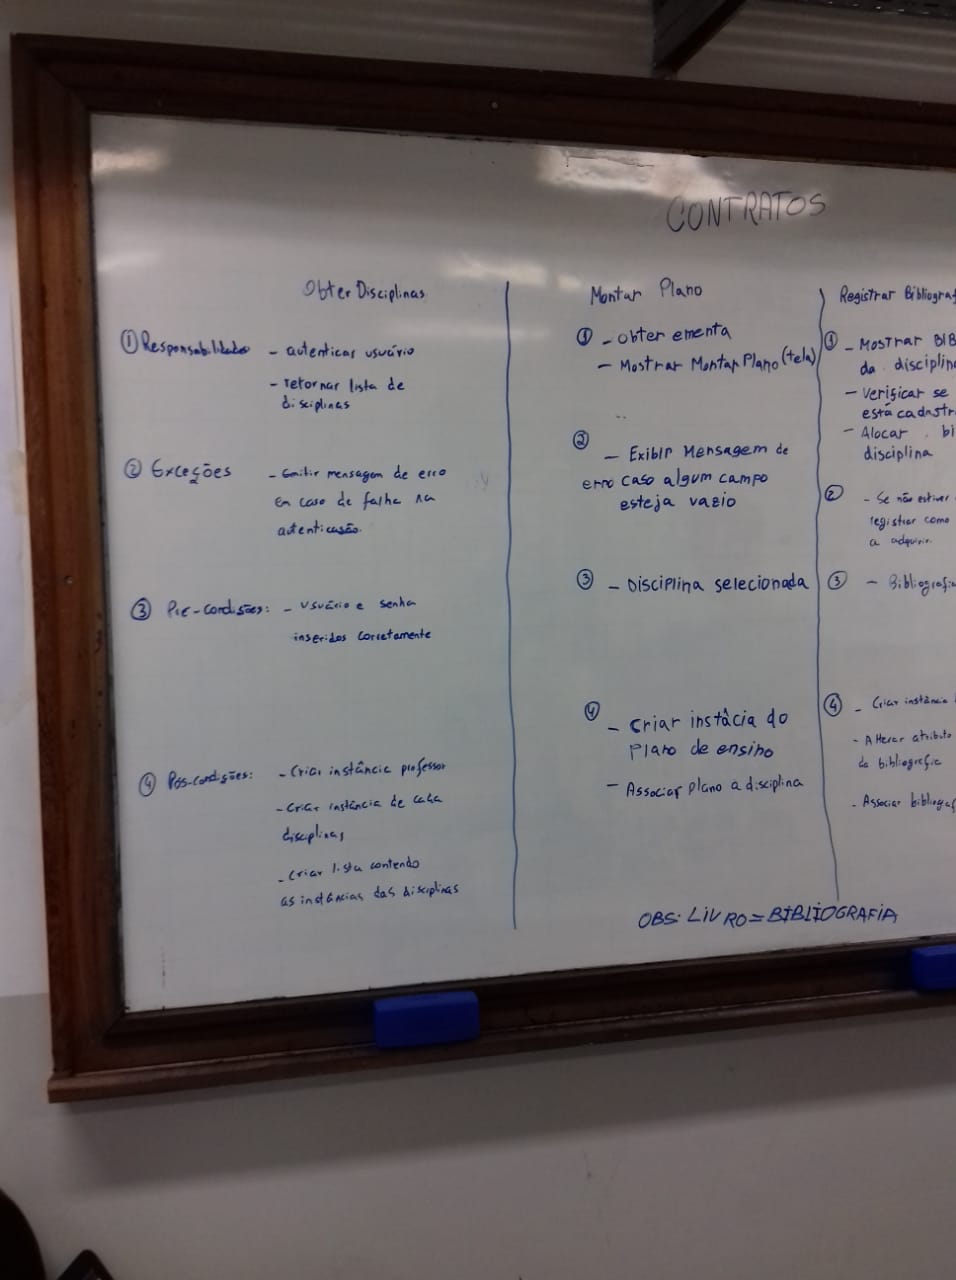 CONTRATOS
Obter Disciplinas
① Responsabilidades - autenticar usuário
- retornar lista de
disciplinas
② Exceções - Emitir mensagem de erro
Em caso de falha na
autenticasão.
③ Pré-condisões: - usuário e senha
inseridos corretamente
④ Pós-condisões: - Criar instância professor
- Criar instância de cada
disciplinas
- Criar lista contendo
as instâncias das disciplinas
Montar Plano
① - obter ementa
- Mostrar Montar Plano (tela)
②
- Exibir Mensagem de
erro caso algum campo
esteja vazio
③ - Disciplina selecionada
④ - Criar instâcia do
Plano de ensino
- Associar plano a disciplina
Registrar Bibliograf
① - Mostrar BIB
da disciplin
- Verificar se
está cadastr
- Alocar bi
disciplina
② - Se não estiver
registrar como
a adquirir.
③ - Bibliografi
④ - Criar instância
- Alterar atributo
da bibliografia
- Associar bibliogaf
OBS: LIVRO = BIBLIOGRAFIA